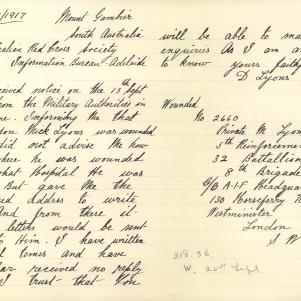 /1917 Mount Gambier
South Australia
alian Red Cross Society
Information Bureau Adelaide
ceived notice on the 13th Sept
from the Military Authorities in
ne. Informing Me that
on Mick Lyons was wounded
did not advise Me how
here he was wounded
what Hospital He was
But gave Me the
ed address to write
And from there it
letters would be sent
to Him. I have written
l times and have
far received no reply
I trust that You
will be able to ma
enquiries As I am an
to know yours faithf
D Lyons
Wounded
No 2660
Private M Lyons
5th Reinforcemen
32 Battalion
8th Brigade
C/O A.I.F Headqua
130 Horseferry R
Westminister
London
S W